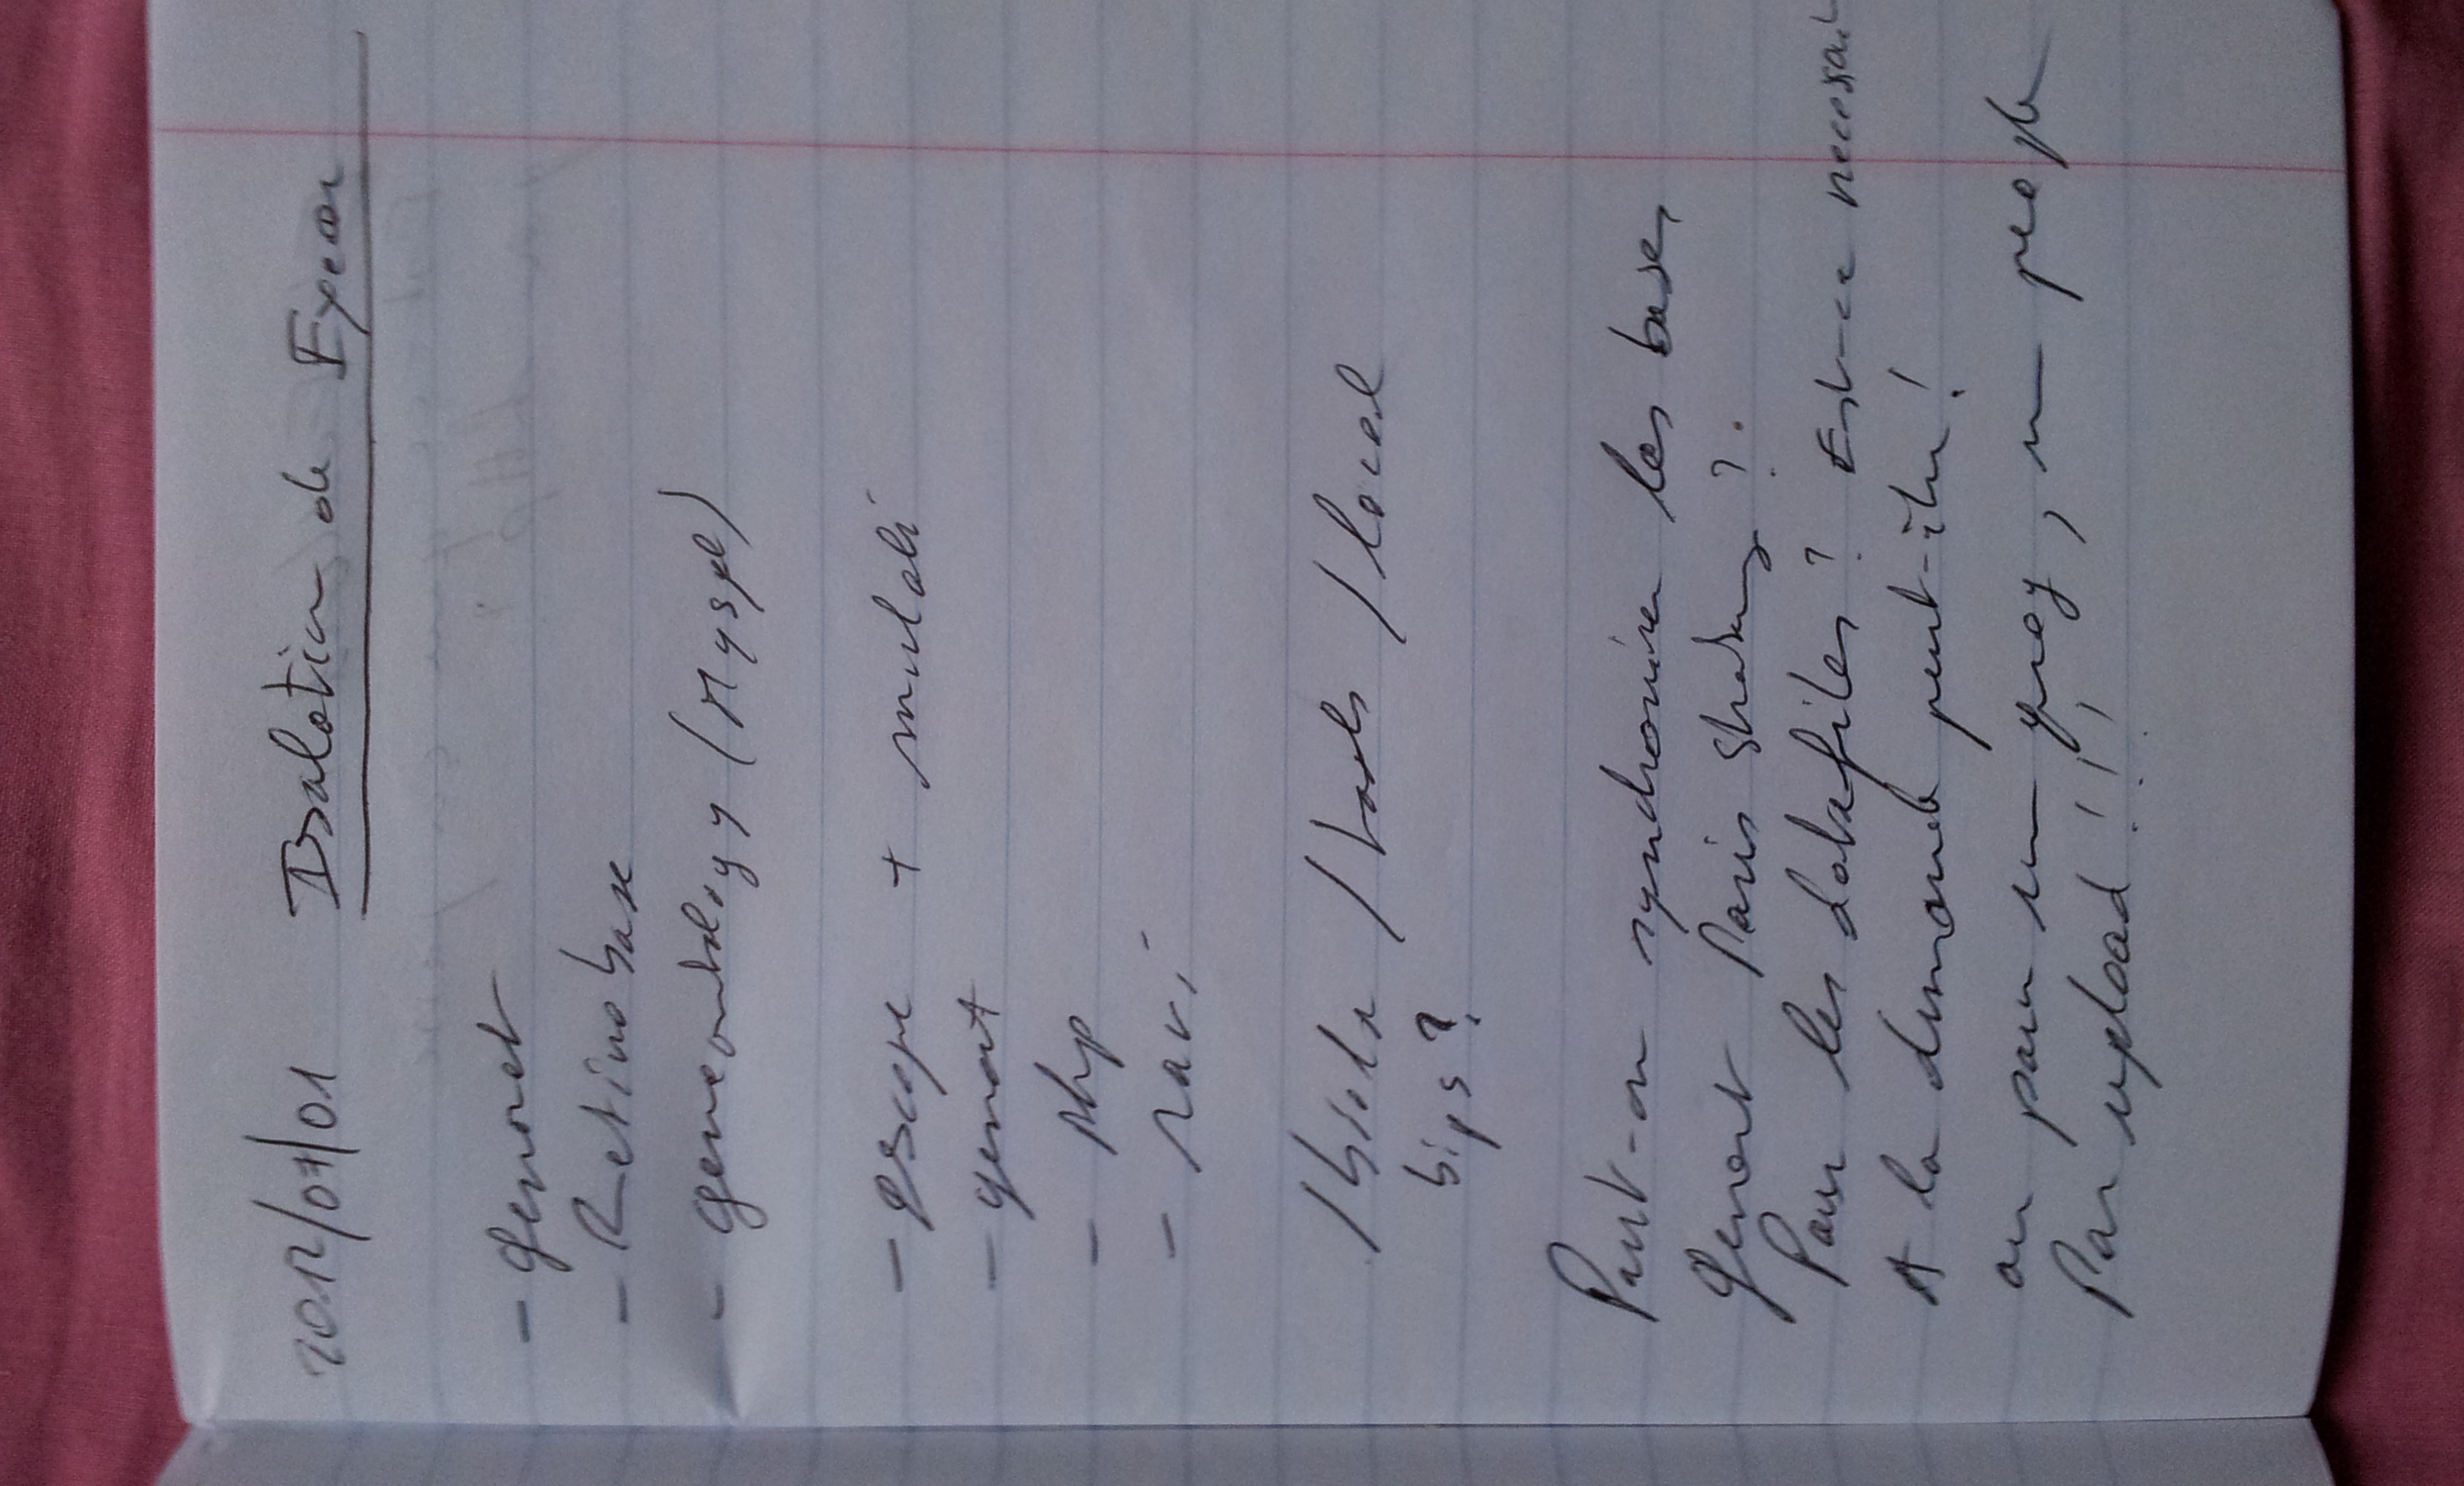 2012/07/01 Isolation de Fxeon
- genoret
- Retinobase
- geneontology (Mysql)
- gscope + mulali
- genoret
- php
- ravi
/bsolr /tools /local
bips?
Peut-on synchroniser les bases
genoret Paris Strasbourg ?.
Pour les datafiles ? Est-ce necessai
A la demande peut-être !
ou pour un , un
Par upload !!!